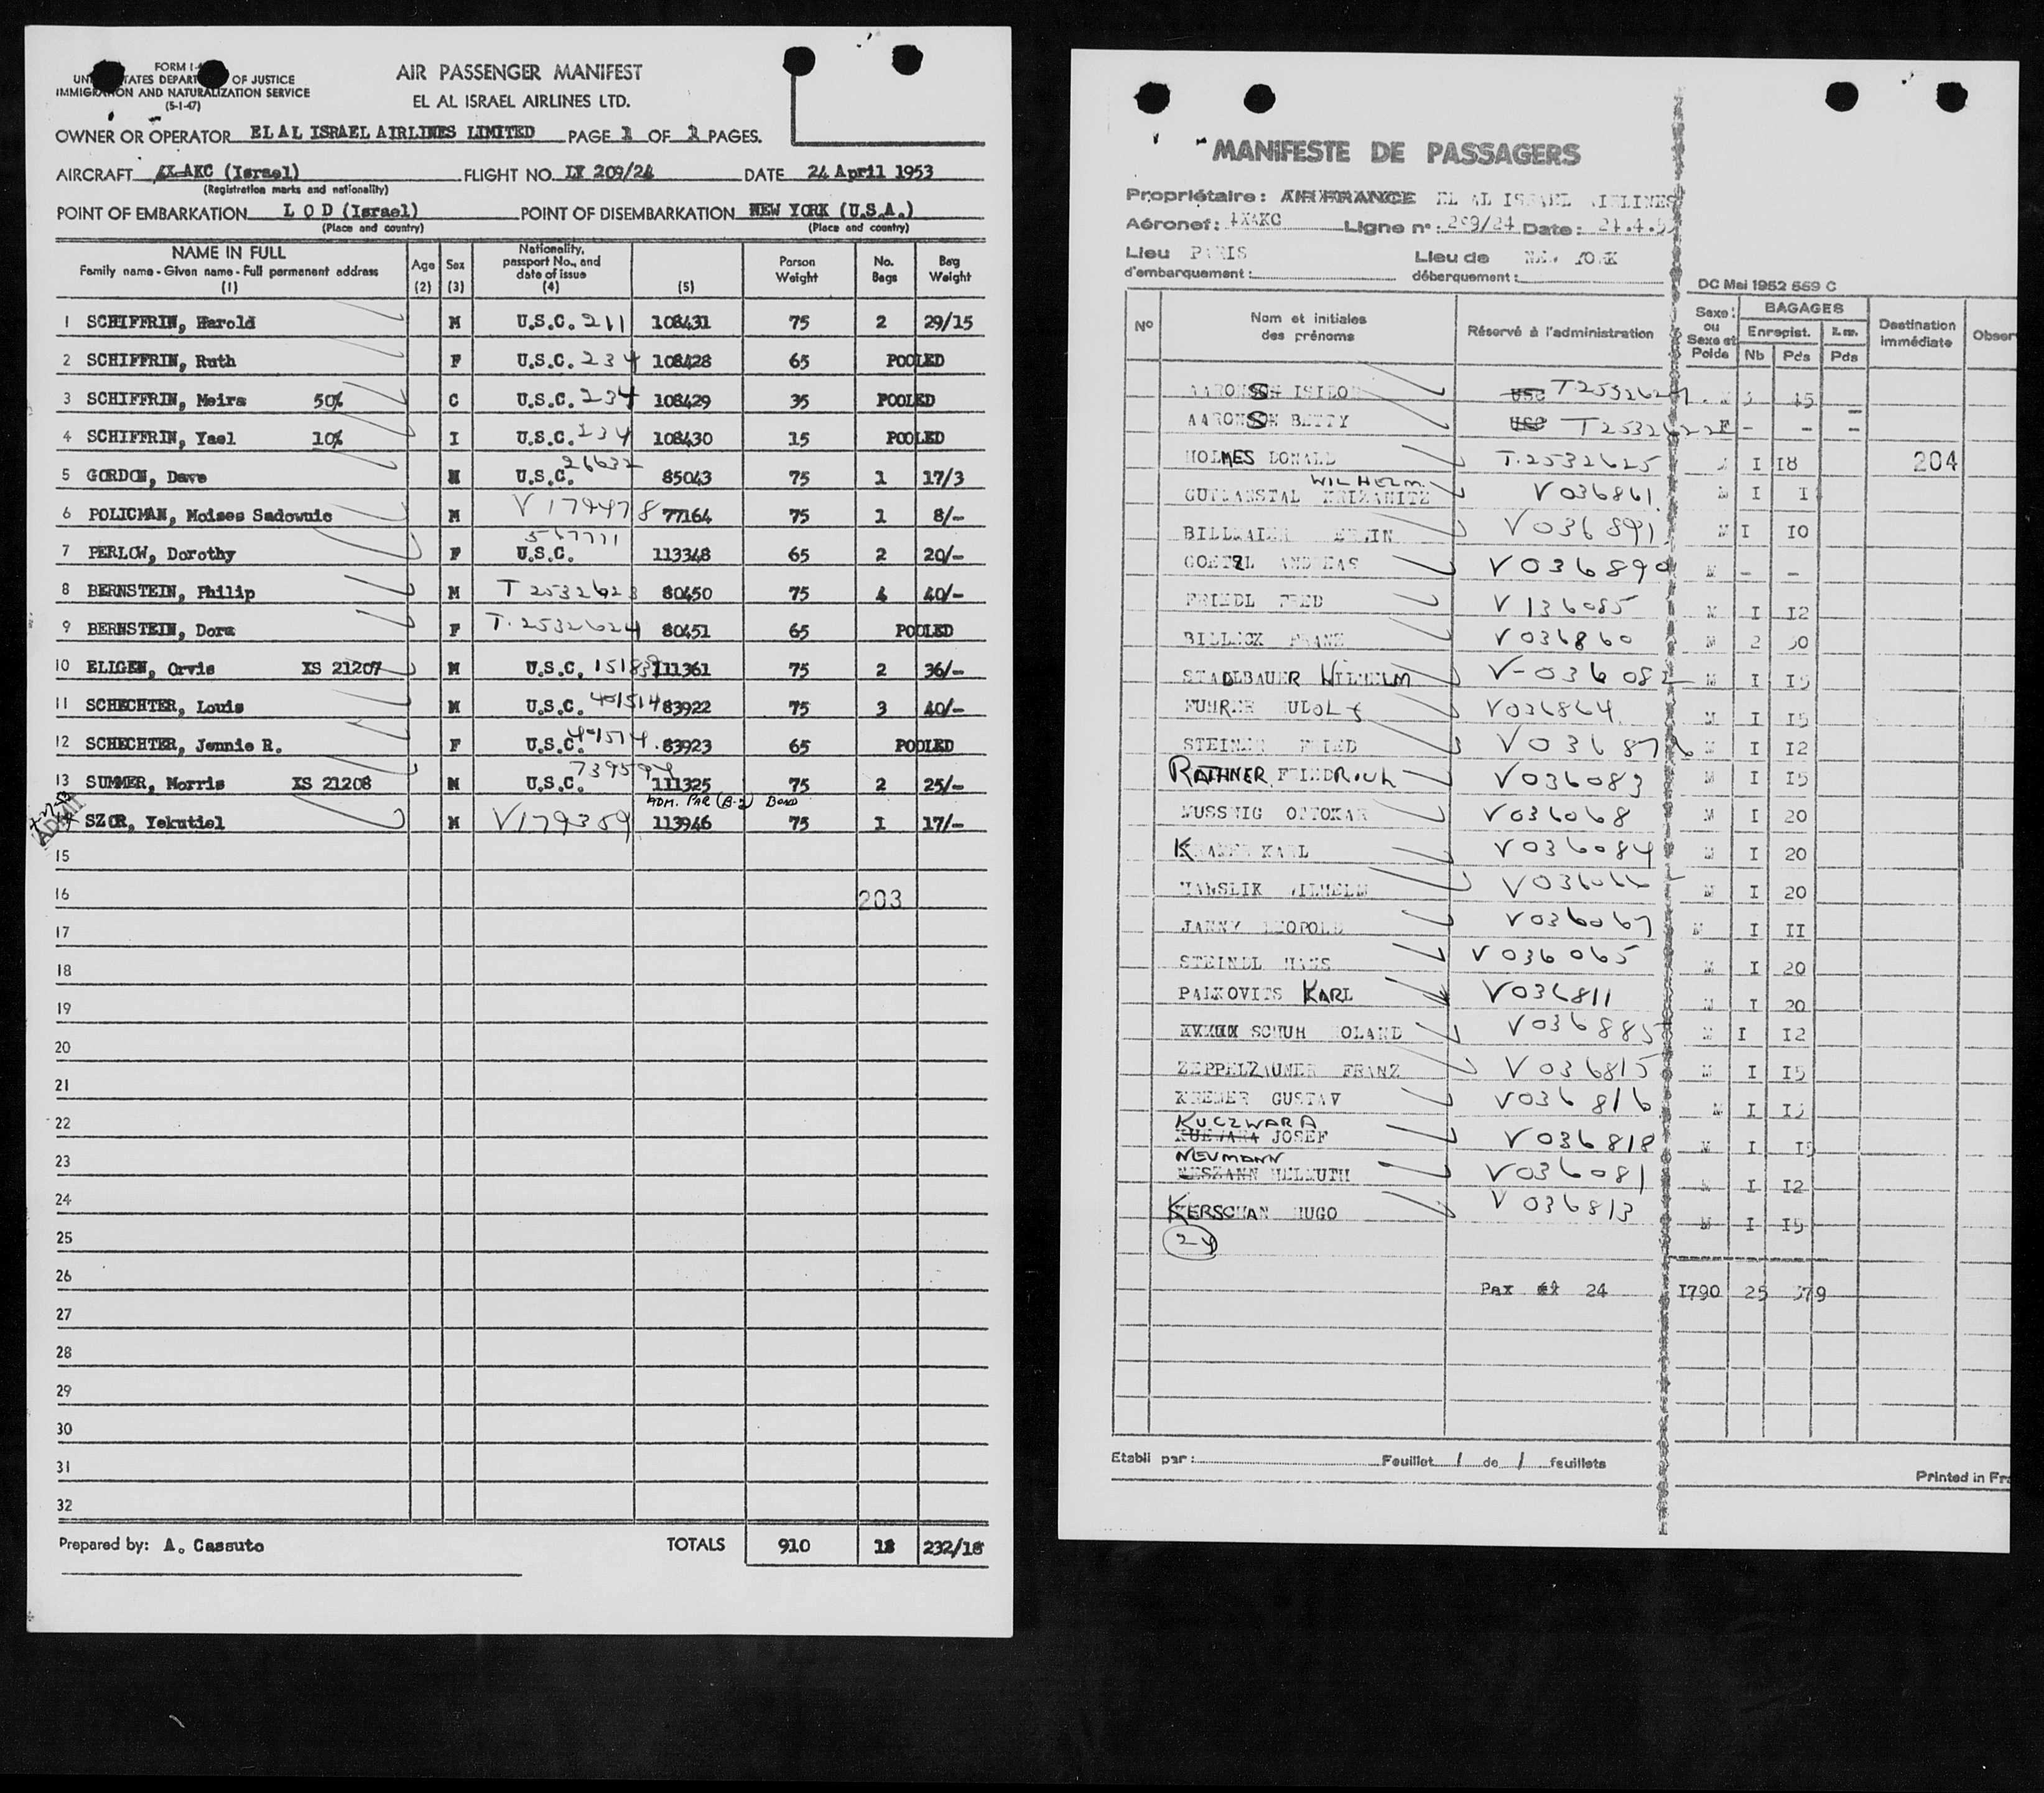 FORM I-
UN TATES DEPART OF JUSTICE
IMMIGRATION AND NATURALIZATION SERVICE
(5-1-47)
AIR PASSENGER MANIFEST
EL AL ISRAEL AIRLINES LTD.
OWNER OR OPERATOR EL AL ISRAEL AIRLINES LIMITED PAGE 1 OF 1 PAGES.
AIRCRAFT 4X-AKC (Israel) FLIGHT NO. LY 209/24 DATE 24 April 1953
(Registration marks and nationality)
POINT OF EMBARKATION L O D (Israel) POINT OF DISEMBARKATION NEW YORK (U.S.A.)
(Place and country) (Place and country)
NAME IN FULL
Family name - Given name - Full permanent address
(1)
Age
(2)
Sex
(3)
Nationality,
passport No., and
date of issue
(4)
(5)
Person
Weight
No.
Bags
Bag
Weight
1 SCHIFFRIN, Harold M U.S.C. 211 108431 75 2 29/15
2 SCHIFFRIN, Ruth F U.S.C. 234 108428 65 POOLED
3 SCHIFFRIN, Meira 50% C U.S.C. 234 108429 35 POOLED
4 SCHIFFRIN, Yael 10% I U.S.C. 234 108430 15 POOLED
5 GORDON, Dave M U.S.C. 26632 85043 75 1 17/3
6 POLICMAN, Moises Sadowuic M V179478 77164 75 1 8/-
7 PERLOW, Dorothy F U.S.C. 567711 113348 65 2 20/-
8 BERNSTEIN, Philip M T2532623 80450 75 4 40/-
9 BERNSTEIN, Dora F T.2532624 80451 65 POOLED
10 ELIGEN, Orvis XS 21207 M U.S.C. 111361 75 2 36/-
11 SCHECHTER, Louis M U.S.C. 401514 83922 75 3 40/-
12 SCHECHTER, Jennie R. F U.S.C. 401514 83923 65 POOLED
13 SUMMER, Morris XS 21208 M U.S.C. 111325 75 2 25/-
ADM. PAR (B-2) BOND
SZOR, Yekutiel M V179389 113946 75 1 17/-
15
16 203
17
18
19
20
21
22
23
24
25
26
27
28
29
30
31
32
Prepared by: A. Cassuto TOTALS 910 18 232/18
MANIFESTE DE PASSAGERS
Propriétaire: AIR FRANCE EL AL ISRAEL AIRLINES
Aéronef: 4XAKC Ligne n°: 209/24 Date: 24.4.5
Lieu PARIS Lieu de NEW YORK
d'embarquement: débarquement:
DC Mai 1952 559 C
N°
Nom et initiales
des prénoms
Réservé à l'administration
Sexe
ou
Sexe et
Poids
BAGAGES
Enregist.
Nb Pds Pds
Destination
immédiate
Obser
AARONSON ISIDOR USC 15
AARONSON BETTY USC F - - -
HOLMES DONALD T.2532625 I 18 204
WILHELM
V036861 M I
ERWIN V036891 M I 10
GOETZL ANDREAS V036890 M - -
FRIEDL FRED V136085 M I 12
FRANZ V036860 M 2
STADLBAUER WILHELM M I 15
FUHRER RUDOLF V036864 M I 15
STEINER FRIED M I 12
RATHNER FRIEDRICH V036083 M I 15
WUSSNIG OTTOKAR V036068 M I 20
KRAMER KARL V036084 M I 20
HAWSLIK WILHELM M I 20
JANNY LEOPOLD V036067 M I II
STEINDL HANS V036065 M I 20
PALKOVITS KARL V036811 M I 20
SCHUH ROLAND V036885 M I 12
ZEPPELZAUNER FRANZ V036815 M I 15
KREMER GUSTAV V036816 M I 15
KUCZWARA
JOSEF V036818 M I 15
NEUMANN
HELMUTH V036081 M I 12
KERSCHAN HUGO V036813 M I 15
24
Pax 24 1790 25
Etabli par: Feuillet 1 de 1 feuillets
Printed in Fra